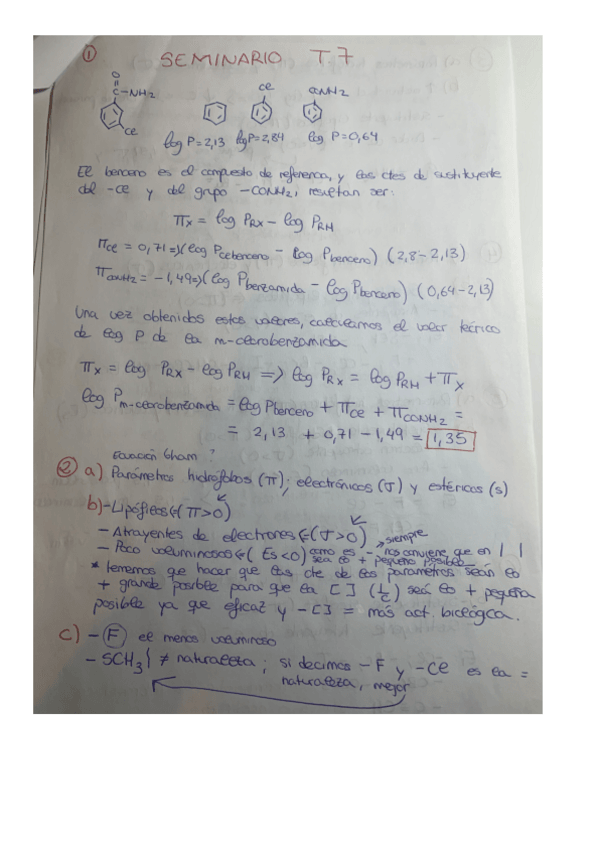 ① SEMINARIO T.7
O
C-NH2
Ce
Ce
CONH2
log P=2,13 log P=2,84 log P=0,64
El benceno es el compuesto de referencia, y las ctes de sustituyente
del -Ce y del grupo -CONH2, resultan ser:
πx = log PRX - log PRH
πce = 0,71 => (log Pcebenceno - log Pbenceno) (2,8-2,13)
πCONH2 = -1,49 => (log Pbenzamida - log Pbenceno) (0,64-2,13)
Una vez obtenidos estos valores, calculamos el valor teórico
de log P de la m-clorobenzamida
πx = log PRX - log PRH => log PRX = log PRH + πx
log Pm-clorobenzamida = log Pbenceno + πce + πCONH2 =
= 2,13 + 0,71 - 1,49 = 1,35
Ecuación Gham?
② a) Parámetros hidrófobos (π); electrónicos (σ) y estéricos (s)
b) - Lipófilos (π>0)
- Atrayentes de electrones (σ>0)
siempre
- Poco voluminosos (Es<0) como es - nos conviene que en | |
sea lo + pequeño posible
* Tenemos que hacer que las cte de los parametros sean lo
+ grande posible para que la [ ] (1/c) sea lo + pequeña
posible ya que eficaz y -[ ] = más act. biológica.
c) - F el menos voluminoso
- SCH3 ≠ naturaleza; si decimos -F y -Ce es la =
naturaleza, mejor